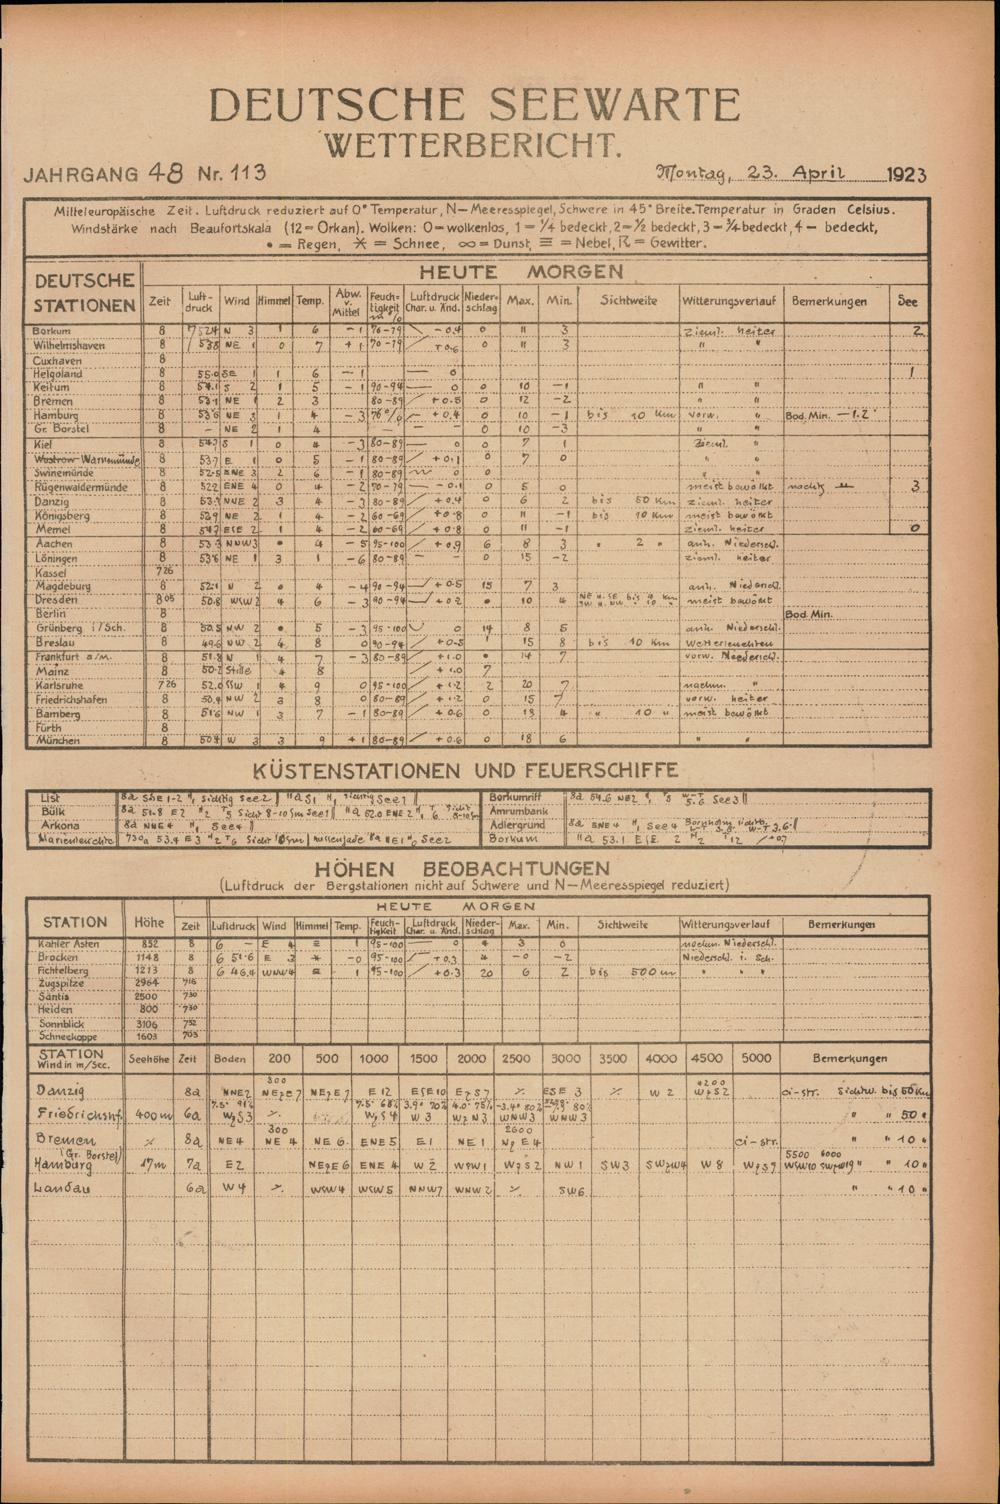 DEUTSCHE SEEWARTE
WETTERBERICHT.
JAHRGANG 48 Nr. 113 Montag, 23. April 1923
Mitteleuropäische Zeit. Luftdruck reduziert auf 0° Temperatur, N—Meeresspiegel, Schwere in 45° Breite. Temperatur in Graden Celsius.
Windstärke nach Beaufortskala (12=Orkan). Wolken: 0=wolkenlos, 1=¼ bedeckt, 2=½ bedeckt, 3=¾ bedeckt, 4— bedeckt,
• = Regen, ✶ = Schnee, ∞ = Dunst, ≡ = Nebel, R = Gewitter.
DEUTSCHE STATIONEN HEUTE MORGEN
Zeit Luft-druck Wind Himmel Temp. Abw. v. Mittel Feuch-tigkeit in % Luftdruck Char. u. Änd. Nieder-schlag Max. Min. Sichtweite Witterungsverlauf Bemerkungen See
Borkum 8 752.4 N 3 1 6 — 1 76-79 — 0.4 0 11 3 zieml. heiter 2
Wilhelmshaven 8 NE 1 0 7 + 1 70-79 + 0.6 0 11 3 " "
Cuxhaven 8
Helgoland 8 55.0 SE 1 1 6 — 1 — 0 1
Keitum 8 54.1 S 2 1 5 — 1 90-94 — 0 0 10 —1 " "
Bremen 8 53.1 NE 1 2 3 80-89 + 0.5 0 12 —2 " "
Hamburg 8 53.6 NE 3 1 4 — 3 76% + 0.4 0 10 —1 bis 10 Km vorw. " Bod. Min. —1.2
Gr. Borstel 8 — NE 2 1 4 — — 0 10 —3 " "
Kiel 8 S 1 0 4 — 3 80-89 0 0 7 1 zieml. "
Warnemünde 8 53.7 E 1 0 5 — 1 80-89 + 0.1 0 7 0 " "
Swinemünde 8 52.5 ENE 3 2 6 — 1 80-89 0 0 " "
Rügenwaldermünde 8 52.2 ENE 4 0 4 — 2 70-79 — 0.1 0 5 0 meist bewölkt nachts 3
Danzig 8 53.9 NNE 2 3 4 — 3 80-89 + 0.4 0 6 2 bis 50 Km zieml. heiter
Königsberg 8 52.9 NE 2 1 4 — 2 60-69 + 0.8 0 11 —1 bis 10 Km meist bewölkt
Memel 8 ESE 2 1 4 — 2 60-69 + 0.8 0 11 —1 zieml. heiter 0
Aachen 8 53.3 NNW 3 • 4 — 5 95-100 + 0.9 6 8 3 " 2 " anh. Niedersch.
Löningen 8 53.6 NE 1 3 1 — 6 80-89 — 0 15 —2 zieml. heiter
Kassel 7 26
Magdeburg 8 52.1 N 2 • 4 — 4 90-94 + 0.5 15 7 3 anh. Niedersch.
Dresden 8 05 50.8 WSW 2 4 6 — 3 90-94 + 0.2 • 10 4 meist bewölkt
Berlin 8 Bod. Min.
Grünberg i/Sch. 8 50.5 NW 2 • 5 — 3 95-100 0 14 8 5 anh. Niederschl.
Breslau 8 49.6 NW 2 4 8 0 90-94 + 0.5 1 15 8 bis 10 Km Wetterleuchten
Frankfurt a/M. 8 51.8 N 1 4 7 — 3 80-89 + 1.0 • 14 7 vorw. Niedersch.
Mainz 8 50.2 Stille 4 8 + 1.0 7
Karlsruhe 7 26 52.0 SSW 1 4 9 0 95-100 + 1.2 2 20 7 nachm. "
Friedrichshafen 8 50.4 NW 2 3 8 0 80-89 + 1.2 0 15 7 vorw. heiter
Bamberg 8 51.6 NW 1 3 7 — 1 80-89 + 0.6 0 19 4 " 10 " meist bewölkt
Fürth 8
München 8 50.4 W 3 3 9 + 1 80-89 + 0.6 0 18 6 " "
KÜSTENSTATIONEN UND FEUERSCHIFFE
List 8a SSE 1-2 sichtig See 2 11a S1 sichtig See 1 Borkumriff 8a 54.6 NE 2 5 W-T 5.6 See 3
Bülk 8a 51.8 E 2 5 Sicht 8-10 sm See 1 11a 52.0 ENE 2 6 8-10 sm Amrumbank
Arkona 8a NNE 4 See 4 Adlergrund 8a ENE 4 See 4 Bornholm sichtb. W-T 3.6
Marienleuchte 7 30a 53.4 E 3 6 Sicht 10 sm Aussenjade 8a NE 1 See 2 Borkum 11a 53.1 ESE 2 12 + 0.7
HÖHEN BEOBACHTUNGEN
(Luftdruck der Bergstationen nicht auf Schwere und N—Meeresspiegel reduziert)
STATION Höhe HEUTE MORGEN
Zeit Luftdruck Wind Himmel Temp. Feuch-tigkeit Luftdruck Char. u. Änd. Nieder-schlag Max. Min. Sichtweite Witterungsverlauf Bemerkungen
Kahler Asten 852 8 6 — E 4 ≡ 1 95-100 — 0 4 3 0 nachm. Niederschl.
Brocken 1148 8 6 51.6 E 3 * —0 95-100 + 0.3 4 —0 —2 Niederschl. i. Sch.
Fichtelberg 1213 8 6 46.4 WNW 4 ≡ 1 95-100 + 0.3 20 6 2 bis 500 m " " "
Zugspitze 2964 7 16
Säntis 2500 7 30
Heiden 800 7 30
Sonnblick 3106 7 52
Schneekoppe 1603 7 03
STATION Wind in m/Sec. Seehöhe Zeit Boden 200 500 1000 1500 2000 2500 3000 3500 4000 4500 5000 Bemerkungen
Danzig 8a NNE 2 300 NEzE 7 NEzE 7 E 12 ESE 10 EzS 7 ⁒ ESE 3 ⁒ W 2 4200 WzS 2 ci-str. Sichtw. bis 50 Km
Friedrichshf. 400 m 6a WzS 3 ⁒ WzS 4 W 3 WzN 3 WNW 3 WNW 3 " " 50 "
Bremen ⁒ 8a NE 4 300 NE 4 NE 6 ENE 5 E 1 NE 1 2600 NzE 4 ci-str. " " 10 "
Hamburg (Gr. Borstel) 17 m 7a E 2 NEzE 6 ENE 4 W 2 WSW 1 WzS 2 NW 1 SW 3 SWzW 4 W 8 WzS 7 5500 WSW 10 6000 SWzW 19 " " 10 "
Landau 6a W 4 ⁒ WSW 4 WSW 5 NNW 7 WNW 2 ⁒ SW 6 " " 10 "